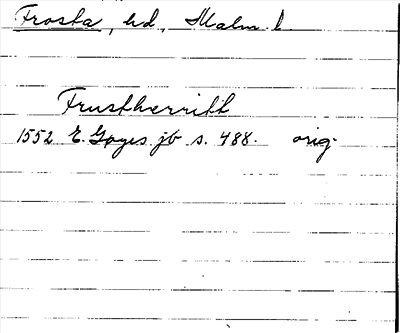 Frosta, hd, Malm. l.
Frustherritt
1552 E. Gøyes jb s. 488. orig.